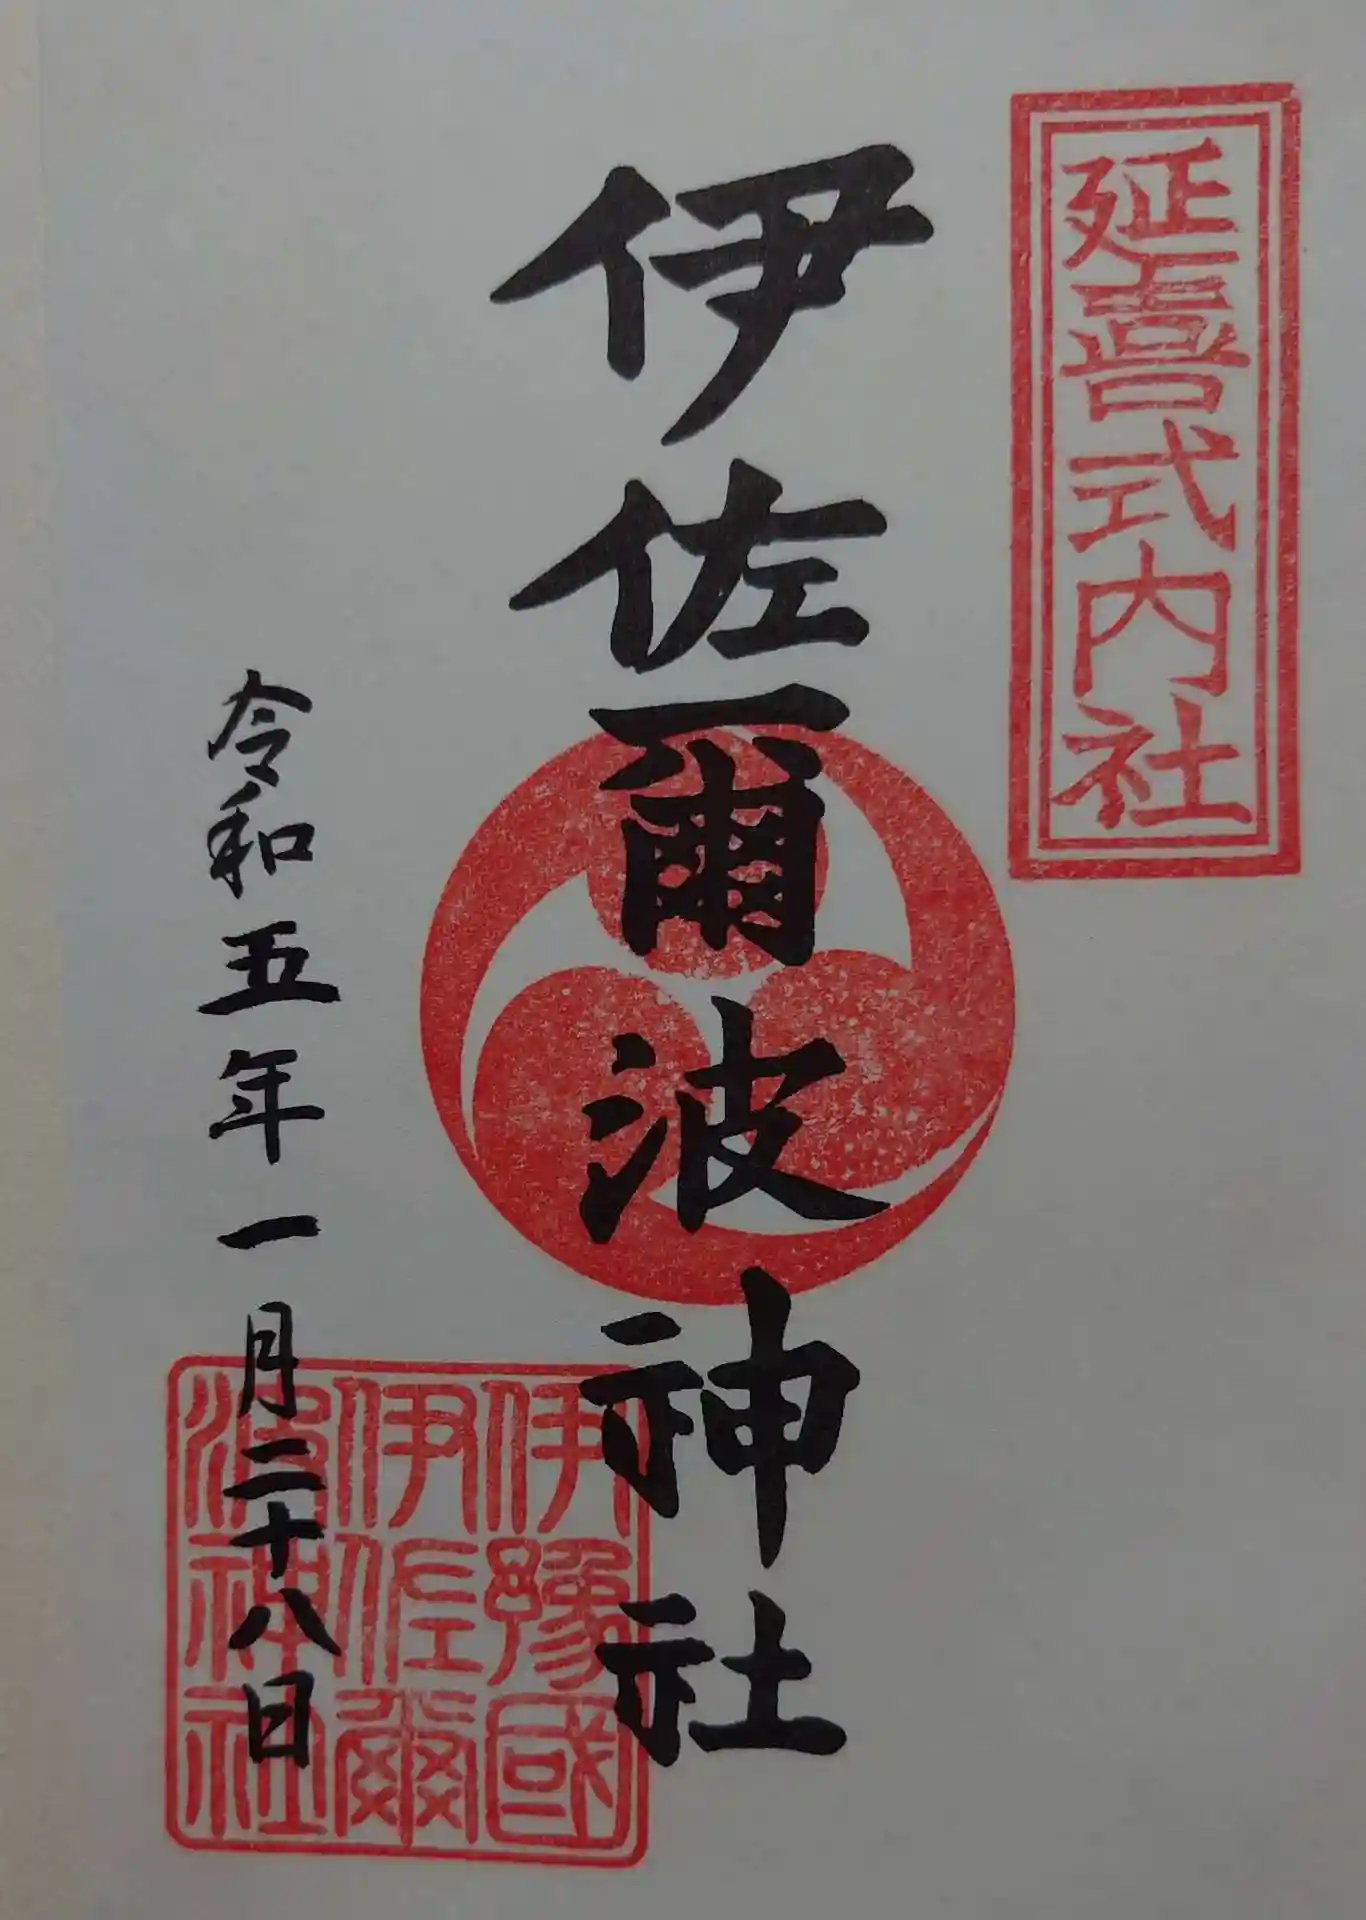 延喜式内社
伊佐爾波神社
令和五年一月二十八日
伊豫國
伊佐爾
波神社